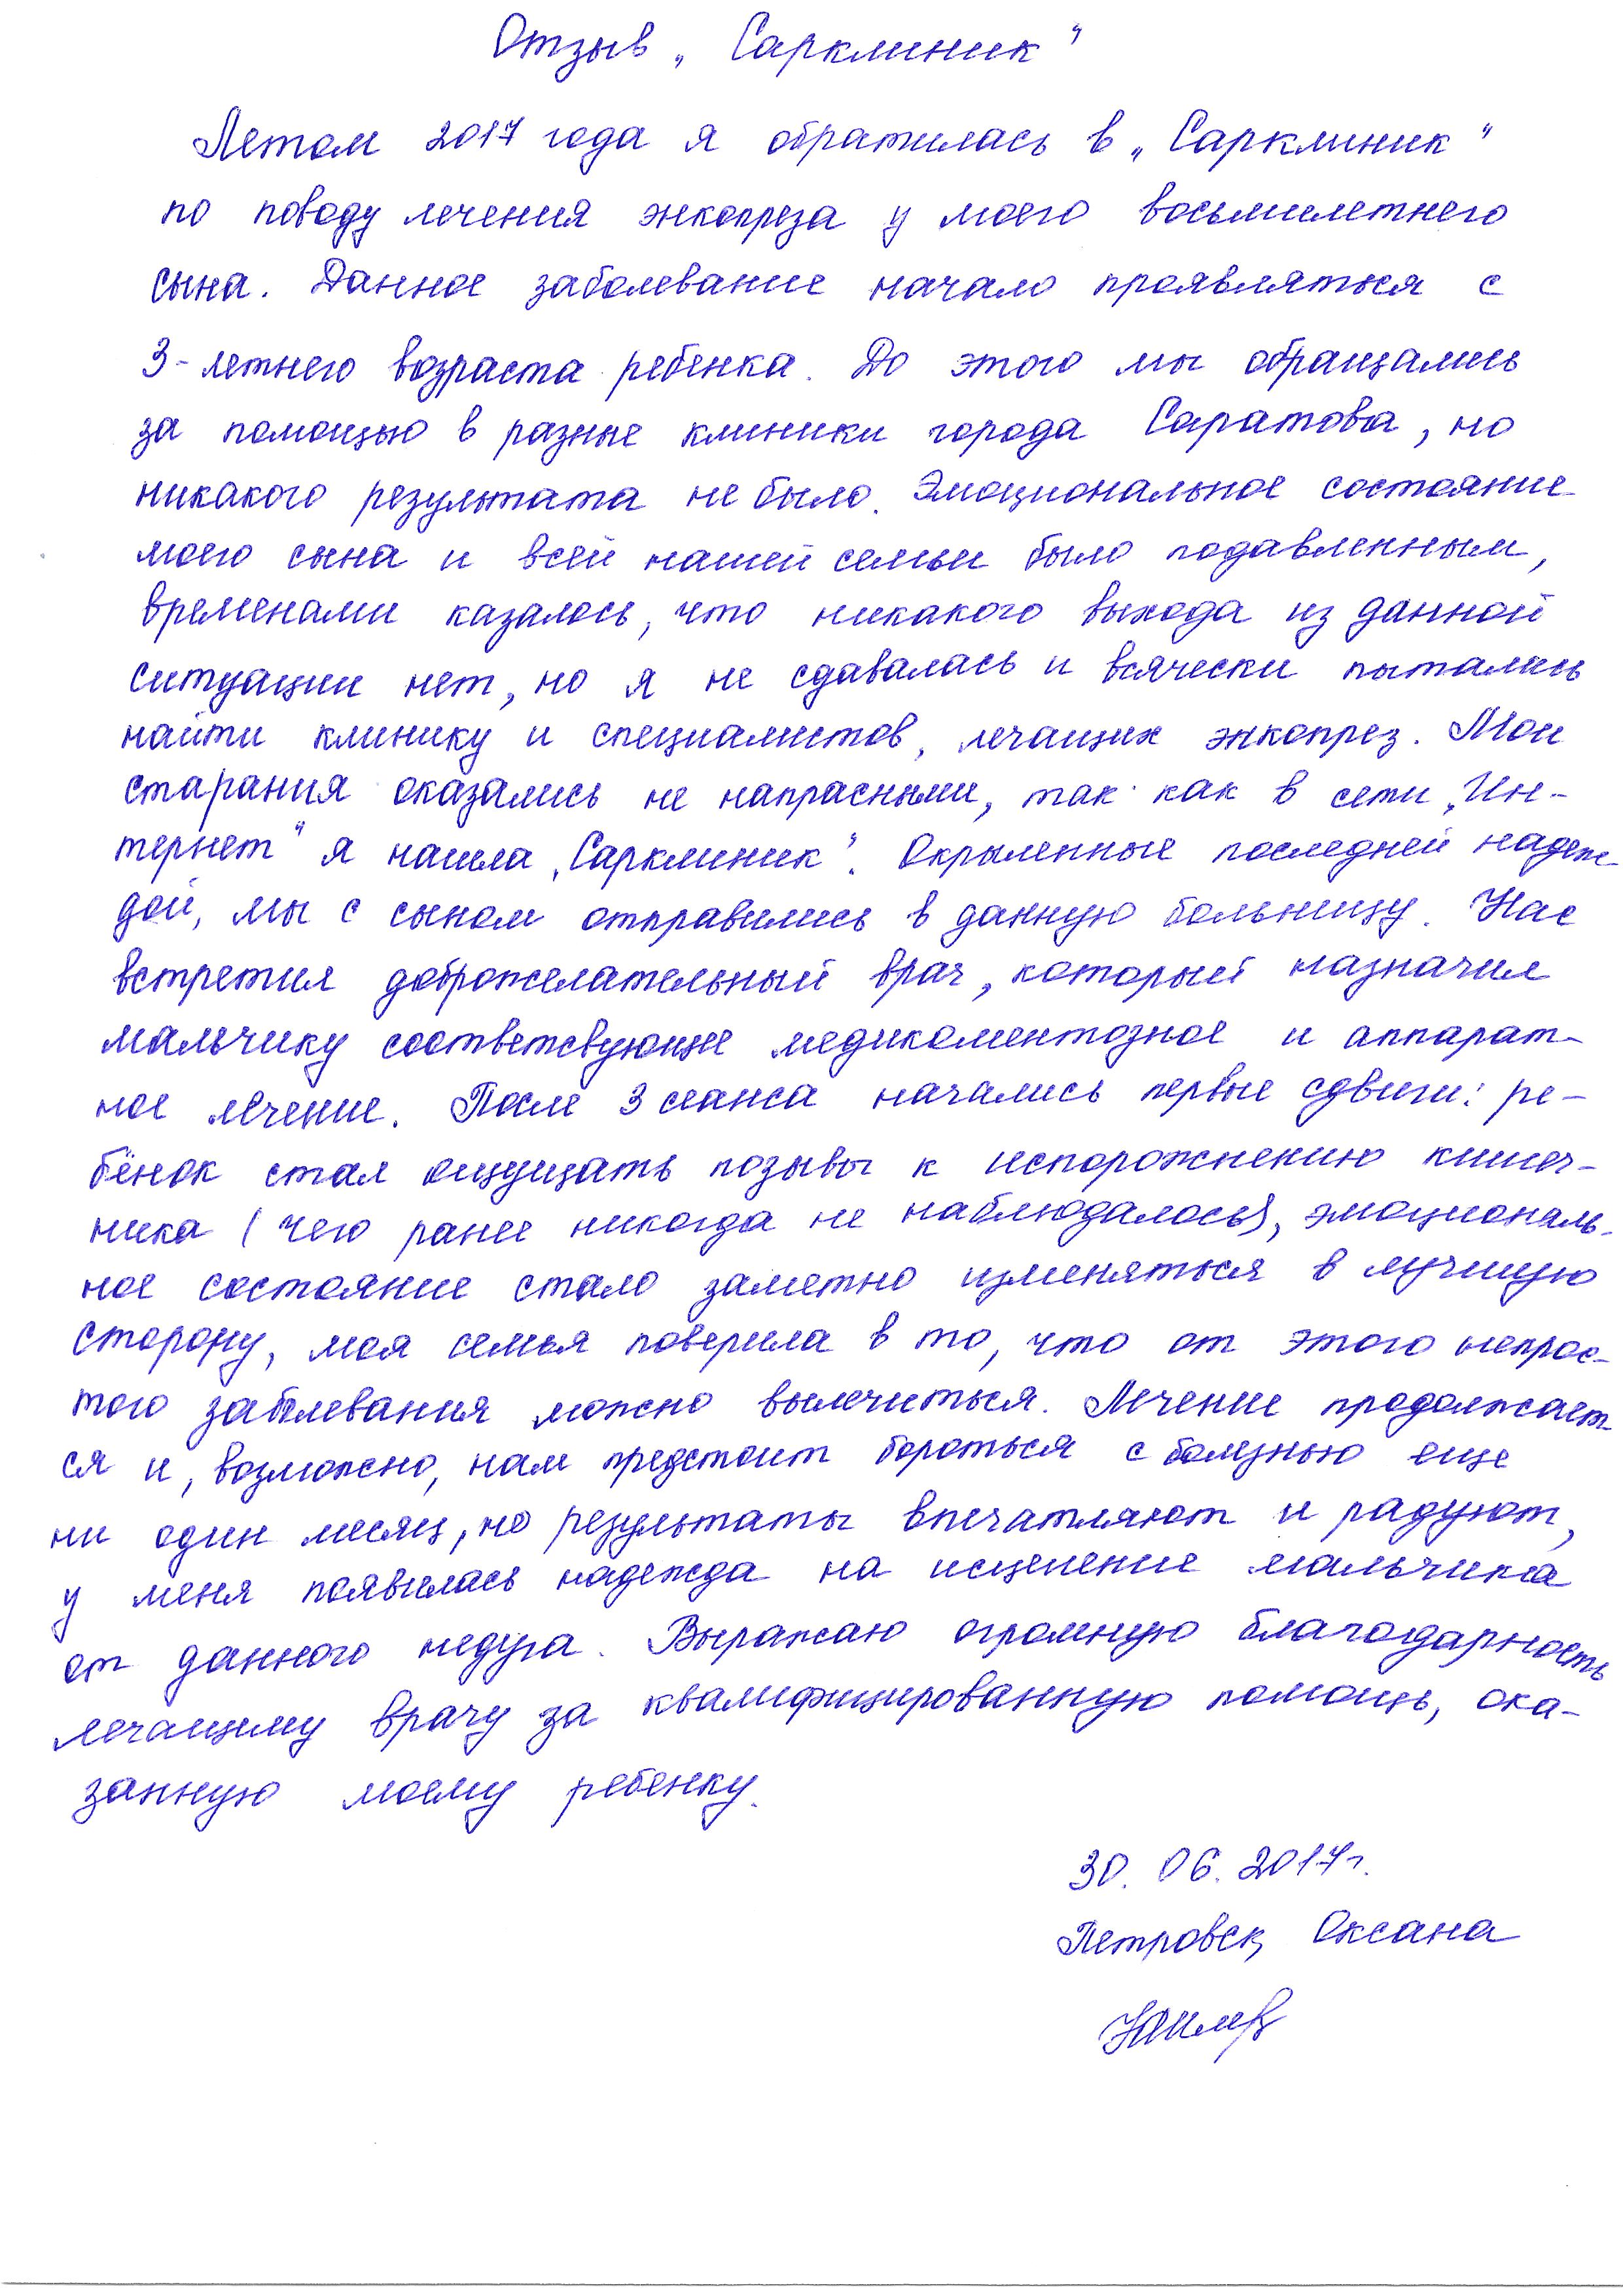 Отзыв „Саркл­иник"
Летом 2017 года я обратилась в „Сарклиник"
по поводу лечения энкопреза у моего восьмилетнего
сына. Данное заболевание начало проявляться с
3-летнего возраста ребенка. До этого мы обращались
за помощью в разные клиники города Саратова, но
никакого результата не было. Эмоциональное состояние
моего сына и всей нашей семьи было подавленным,
временами казалось, что никакого выхода из данной
ситуации нет, но я не сдавалась и всячески пыталась
найти клинику и специалистов, лечащих энкопрез. Мои
старания оказались не напрасными, так как в сети „Ин-
тернет" я нашла „Сарклиник". Окрыленные последней надеж-
дой, мы с сыном отправились в данную больницу. Нас
встретил доброжелательный врач, который назначил
мальчику соответсвующее медикоментозное и аппарат-
ное лечение. После 3 сеанса начались первые сдвиги: ре-
бёнок стал ощущать позывы к испорожнению кишеч-
ника (чего ранее никогда не наблюдалось), эмоциональ-
ное состояние стало заметно изменяться в лучшую
сторону, моя семья поверила в то, что от этого непрос-
того заболевания можно вылечиться. Лечение продолжает-
ся и, возможно, нам предстоит бороться с болезнью еще
ни один месяц, но результаты впечатляют и радуют,
у меня появилась надежда на исцеление мальчика
от данного недуга. Выражаю огромную благодарность
лечащему врачу за квалифицированную помощь, ока-
занную моему ребенку.
30. 06. 2017г.
Петровск, Оксана